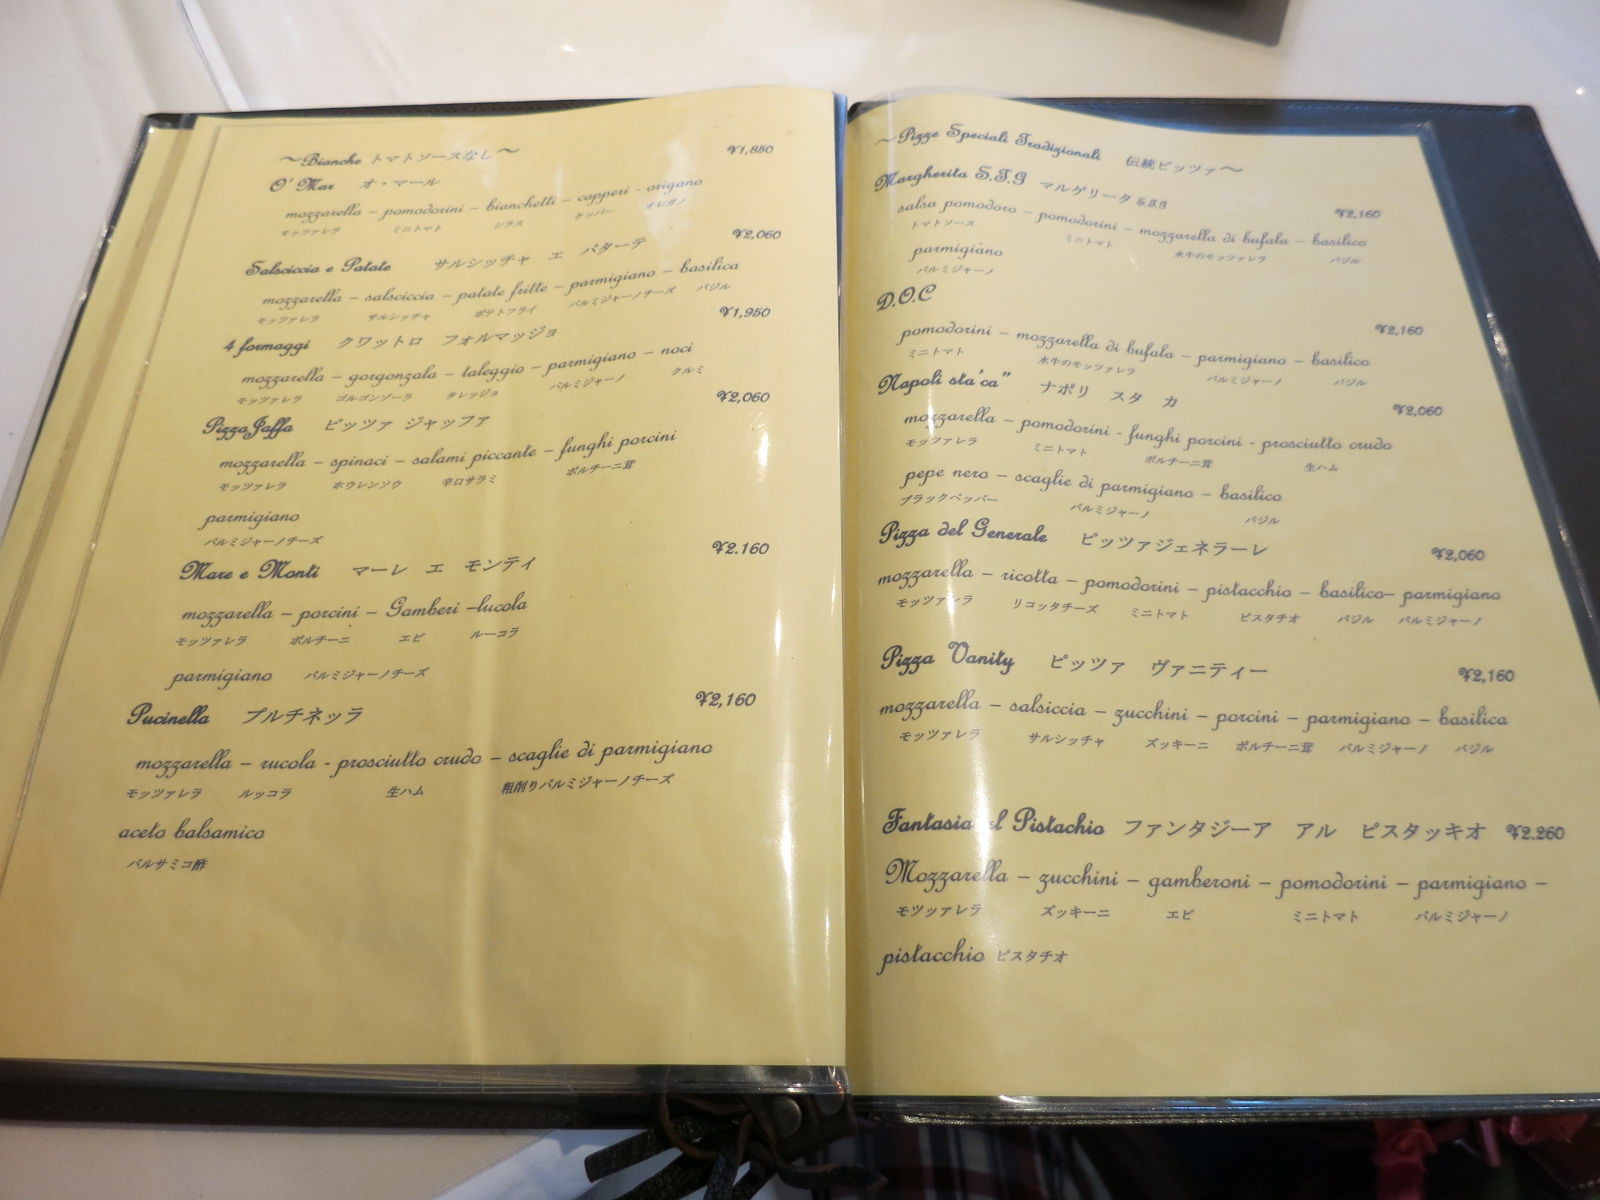 ～Bianche トマトソースなし～
¥1,850
O' Mar オ・マール
mozzarella – pomodorini – bianchetti – capperi - origano
モッツァレラ ミニトマト シラス ケッパー オレガノ
¥2,060
Salsciccia e Patate サルシッチャ エ パターテ
mozzarella – salsciccia – patate fritte – parmigiano – basilica
モッツァレラ サルシッチャ ポテトフライ パルミジャーノチーズ バジル
¥1,950
4 formaggi クワットロ フォルマッジョ
mozzarella – gorgonzala – taleggio – parmigiano – noci
モッツァレラ ゴルゴンゾーラ タレッジョ パルミジャーノ クルミ
¥2,060
Pizza Jaffa ピッツァ ジャッファ
mozzarella – spinaci – salami piccante – funghi porcini
モッツァレラ ホウレンソウ 辛口サラミ ポルチーニ茸
parmigiano
パルミジャーノチーズ
¥2.160
Mare e Monti マーレ エ モンティ
mozzarella – porcini – Gamberi –lucola
モッツァレラ ポルチーニ エビ ルーコラ
parmigiano パルミジャーノチーズ
¥2,160
Pucinella プルチネッラ
mozzarella – rucola - prosciutto crudo – scaglie di parmigiano
モッツァレラ ルッコラ 生ハム 粗削りパルミジャーノチーズ
aceto balsamico
バルサミコ酢
～Pizze Speciali Tradizionali 伝統ピッツァ～
Margherita S.T.G マルゲリータ S.T.G
¥2,160
salsa pomodoro – pomodorini – mozzarella di bufala – basilico
トマトソース ミニトマト 水牛のモッツァレラ バジル
parmigiano
パルミジャーノ
D.O.C
¥2,160
pomodorini – mozzarella di bufala – parmigiano – basilico
ミニトマト 水牛のモッツァレラ パルミジャーノ バジル
Napoli sta'ca" ナポリ スタ カ
¥2,060
mozzarella – pomodorini - funghi porcini - prosciutto crudo
モッツァレラ ミニトマト ポルチーニ茸 生ハム
pepe nero – scaglie di parmigiano – basilico
ブラックペッパー パルミジャーノ バジル
Pizza del Generale ピッツァジェネラーレ
¥2,060
mozzarella – ricotta – pomodorini – pistacchio – basilico– parmigiano
モッツァレラ リコッタチーズ ミニトマト ピスタチオ バジル パルミジャーノ
Pizza Vanity ピッツァ ヴァニティー
¥2,160
mozzarella – salsiccia – zucchini – porcini – parmigiano – basilica
モッツァレラ サルシッチャ ズッキーニ ポルチーニ茸 パルミジャーノ バジル
Fantasia al Pistachio ファンタジーア アル ピスタッキオ ¥2.260
Mozzarella – zucchini – gamberoni – pomodorini – parmigiano –
モツッァレラ ズッキーニ エビ ミニトマト パルミジャーノ
pistacchio ピスタチオ